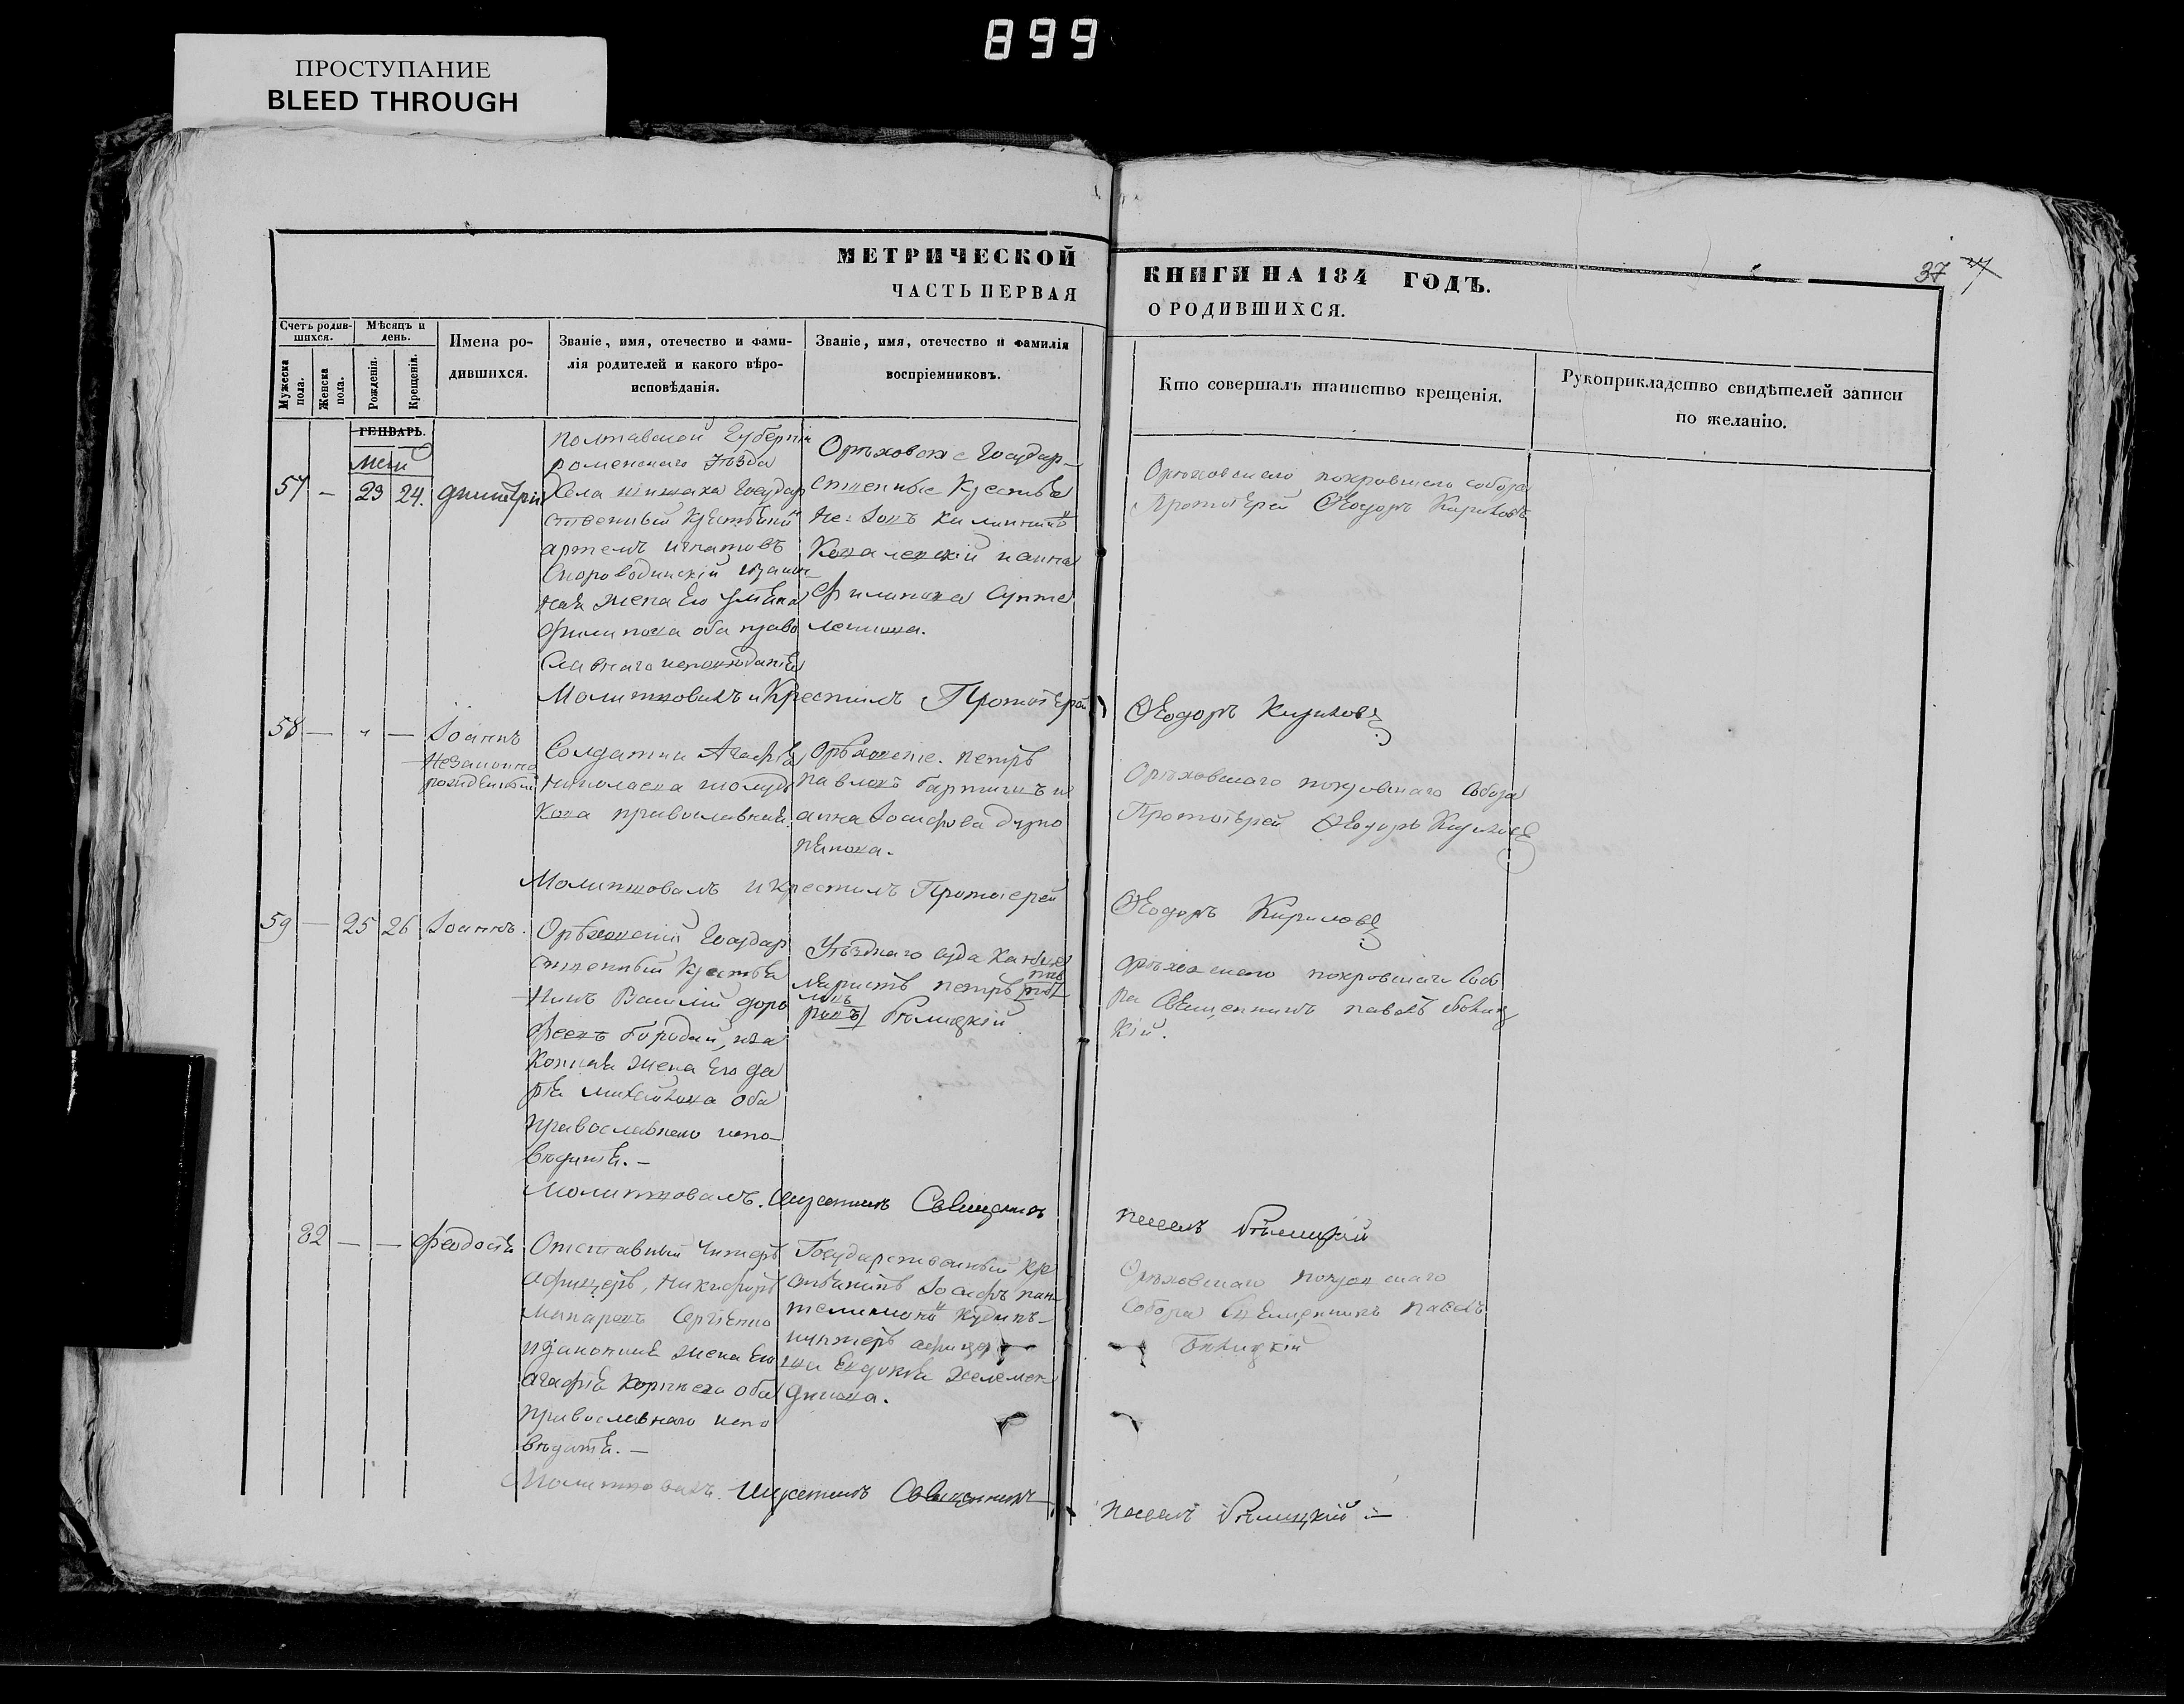 899
ПРОСТУПАНИЕ
BLEED THROUGH
МЕТРИЧЕСКОЙ
ЧАСТЬ ПЕРВАЯ
КНИГИ НА 184 ГОДЪ.
О РОДИВШИХСЯ.
37
Счетъ родив-
шихся.
Мѣсяцъ и
день.
Мужеска
пола.
Женска
пола.
Рожденія.
Крещенія.
Имена ро-
дившихся.
Званіе, имя, отечество и фами-
лія родителей и какого вѣро-
исповѣданія.
Званіе, имя, отечество и фамилія
воспріемниковъ.
Кто совершалъ таинство крещенія.
Рукоприкладство свидѣтелей записи
по желанію.
ГЕНВАРЬ.
57 — 23 24. Димитрій
Полтавской Губерніи
роменскаго уѣзда
Села Государ
ственный Крестьянинъ
артемъ игнатовъ
Сковородинскій и закон-
ная жена его
филипова оба право
славнаго исповѣданія
Орѣховскіе Государ-
ственные Крестья
не:
Коваленскій и анна
Филипова
Орѣховскаго покровскаго собора
Протоіерей Ѳеодоръ Кириловъ
Молитвовалъ и Крестилъ Протоіерей
Ѳеодоръ Кириловъ
58 — " — Іоаннъ
Незаконно
рожденный
Солдатки Агафія
николаева
кова православная.
Орѣховскіе. петръ
павловъ и
анна Іосифова
Орѣховскаго покровскаго Собора
Протоіерей Ѳеодоръ Кириловъ
Молитвовалъ и крестилъ Протоіерей
Ѳеодоръ Кириловъ
59 — 25 26 Іоаннъ.
Орѣховскій Государ
ственный Крестья
нинъ Василій доро
феевъ бородай, и за
конная жена его да
рія Михайлова оба
православнаго испо-
вѣданія. —
Уѣзднаго суда Канце
ляристъ петръ
Бѣлицкій
Орѣховскаго покровскаго Собо
ра Священникъ павелъ Бѣлиц
кій.
Молитвовалъ. и крестилъ Священникъ
павелъ Бѣлицкій
32 — — феодосія
Отставный Унтеръ
афицеръ, Никифоръ
Макаровъ Сергіенко
и законная жена его
агафія оба
православнаго испо
вѣданія. —
Государственный кре
стьянинъ Іосифъ пан-
телимоновъ
унтеръ афицер
ша Евдокія
Орѣховскаго покровскаго
Собора Священникъ павелъ
Бѣлицкій
Молитвовалъ. и крестилъ Священникъ
павелъ Бѣлицкій